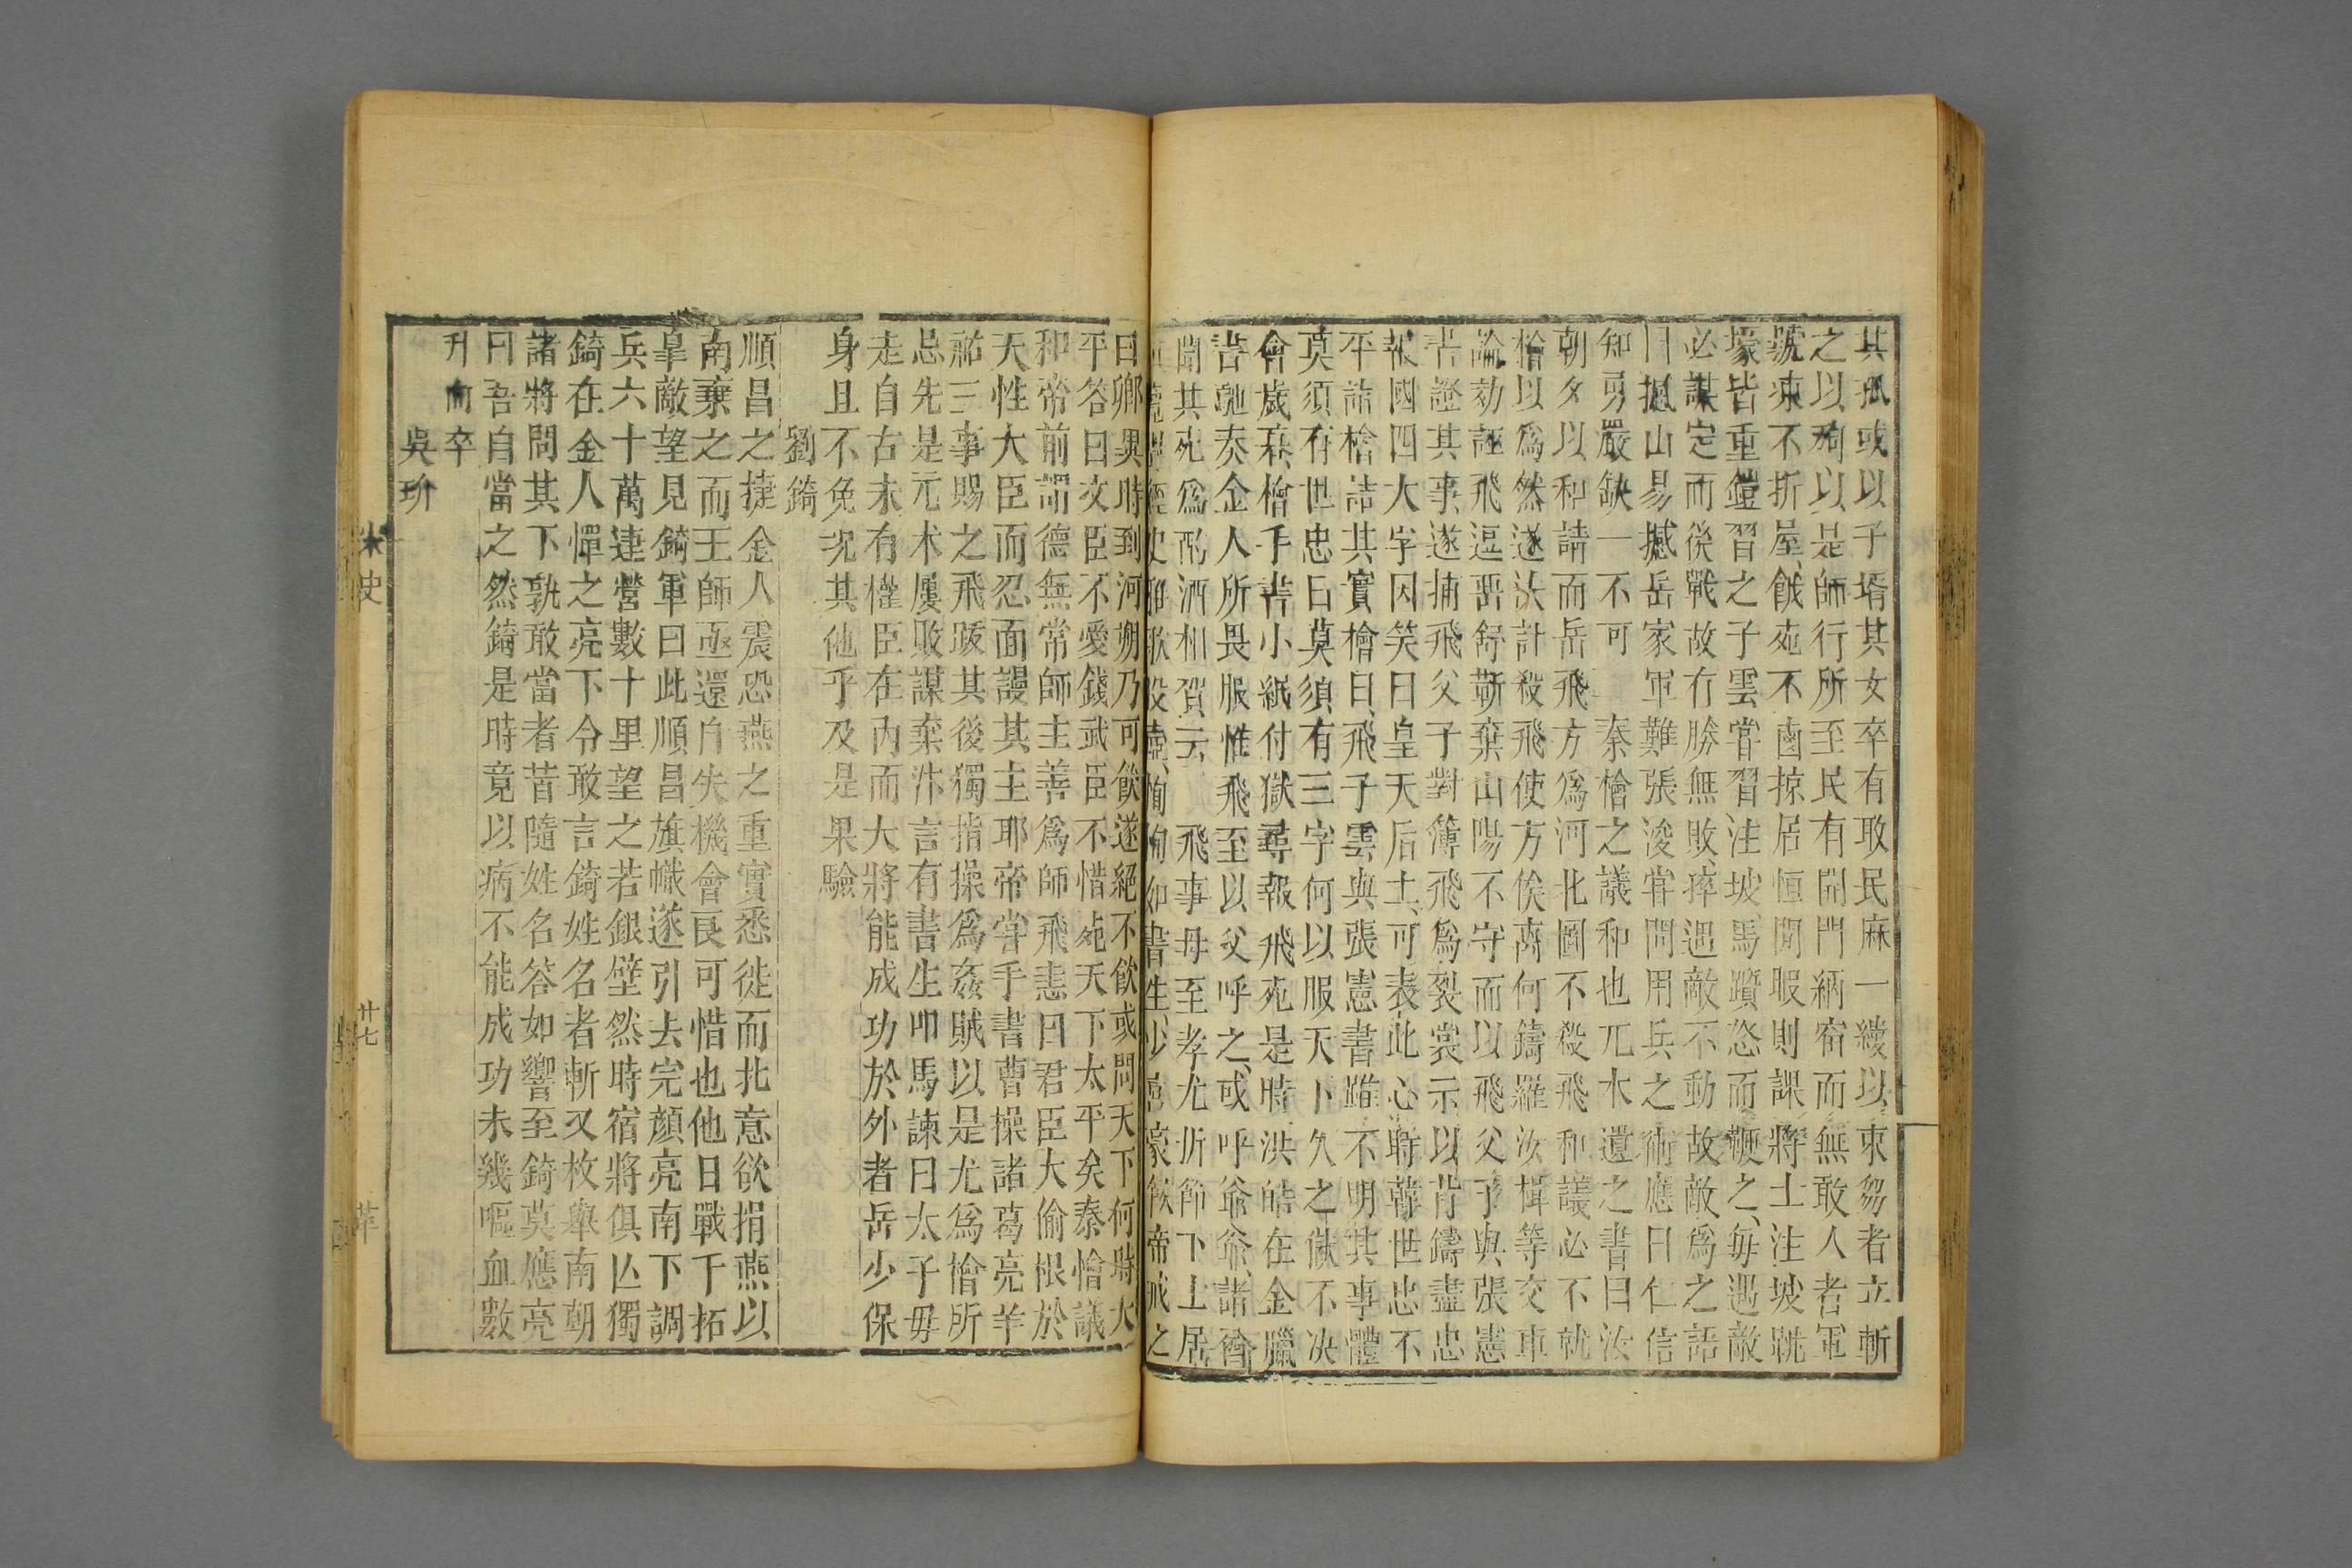 其孤或以子壻其女卒有取民麻一縷以束芻者立斬
之以狥以是師行所至民有開門納宿而無敢入者軍
號凍不折屋餓死不鹵掠居恒閒暇則課將士注坡跳
壕皆重鎧習之子雲嘗習注坡馬躓怒而鞭之毎遇敵
必謀定而後戰故有勝無敗猝遇敵不動故敵爲之語
曰撼山易撼岳家軍難張浚嘗問用兵之術應曰仁信
知勇嚴缺一不可 秦檜之議和也兀术遺之書曰汝
朝夕以和請而岳飛方爲河北圖不殺飛和議必不就
檜以爲然遂決計殺飛使方俟卨何鑄羅汝楫等交車
論劾誣飛逗畱舒蘄棄山陽不守而以飛父子與張憲
書證其事遂捕飛父子對簿飛爲裂裳示以背鑄盡忠
報國四大字因笑曰皇天后土可表此心時韓世忠不
平詣檜詰其實檜曰飛子雲與張憲書雖不明其事體
莫須有世忠曰莫須有三字何以服天下久之獄不决
會歲暮檜手書小紙付獄尋報飛死是時洪皓在金臘
書馳奏金人所畏服惟飛至以父呼之或呼爺爺諸酋
聞其死爲酌酒相賀云 飛事母至孝尤折節下士居
經史雅歌投壺恂恂如書生少豪飲帝戒之
曰卿異時到河朔乃可飲遂絕不飲或問天下何時太
平答曰文臣不愛錢武臣不惜死天下太平矣秦檜議
和帝前謂德無常師主善爲師飛恚曰君臣大倫根於
天性大臣而忍面謾其主耶帝嘗手書曹操諸葛亮羊
祜三事賜之飛䟦其後獨指操爲姦賊以是尤爲檜所
忌先是兀术屢敗謀棄汴言有書生叩馬諫曰太子毋
走自古未有權臣在內而大將能成功於外者岳少保
身且不免况其他乎及是果驗
劉錡
順昌之捷金人震恐燕之重寶悉徙而北意欲捐燕以
南棄之而王師亟還自失機會良可惜也他日戰于柘
皐敵望見錡軍曰此順昌旗幟遂引去完顏亮南下調
兵六十萬連營數十里望之若銀壁然時宿將俱亡獨
錡在金人憚之亮下令敢言錡姓名者斬又枚舉南朝
諸將問其下孰敢當者皆隨姓名答如響至錡莫應亮
曰吾自當之然錡是時竟以病不能成功未幾嘔血數
升而卒
吳玠
史
廿七